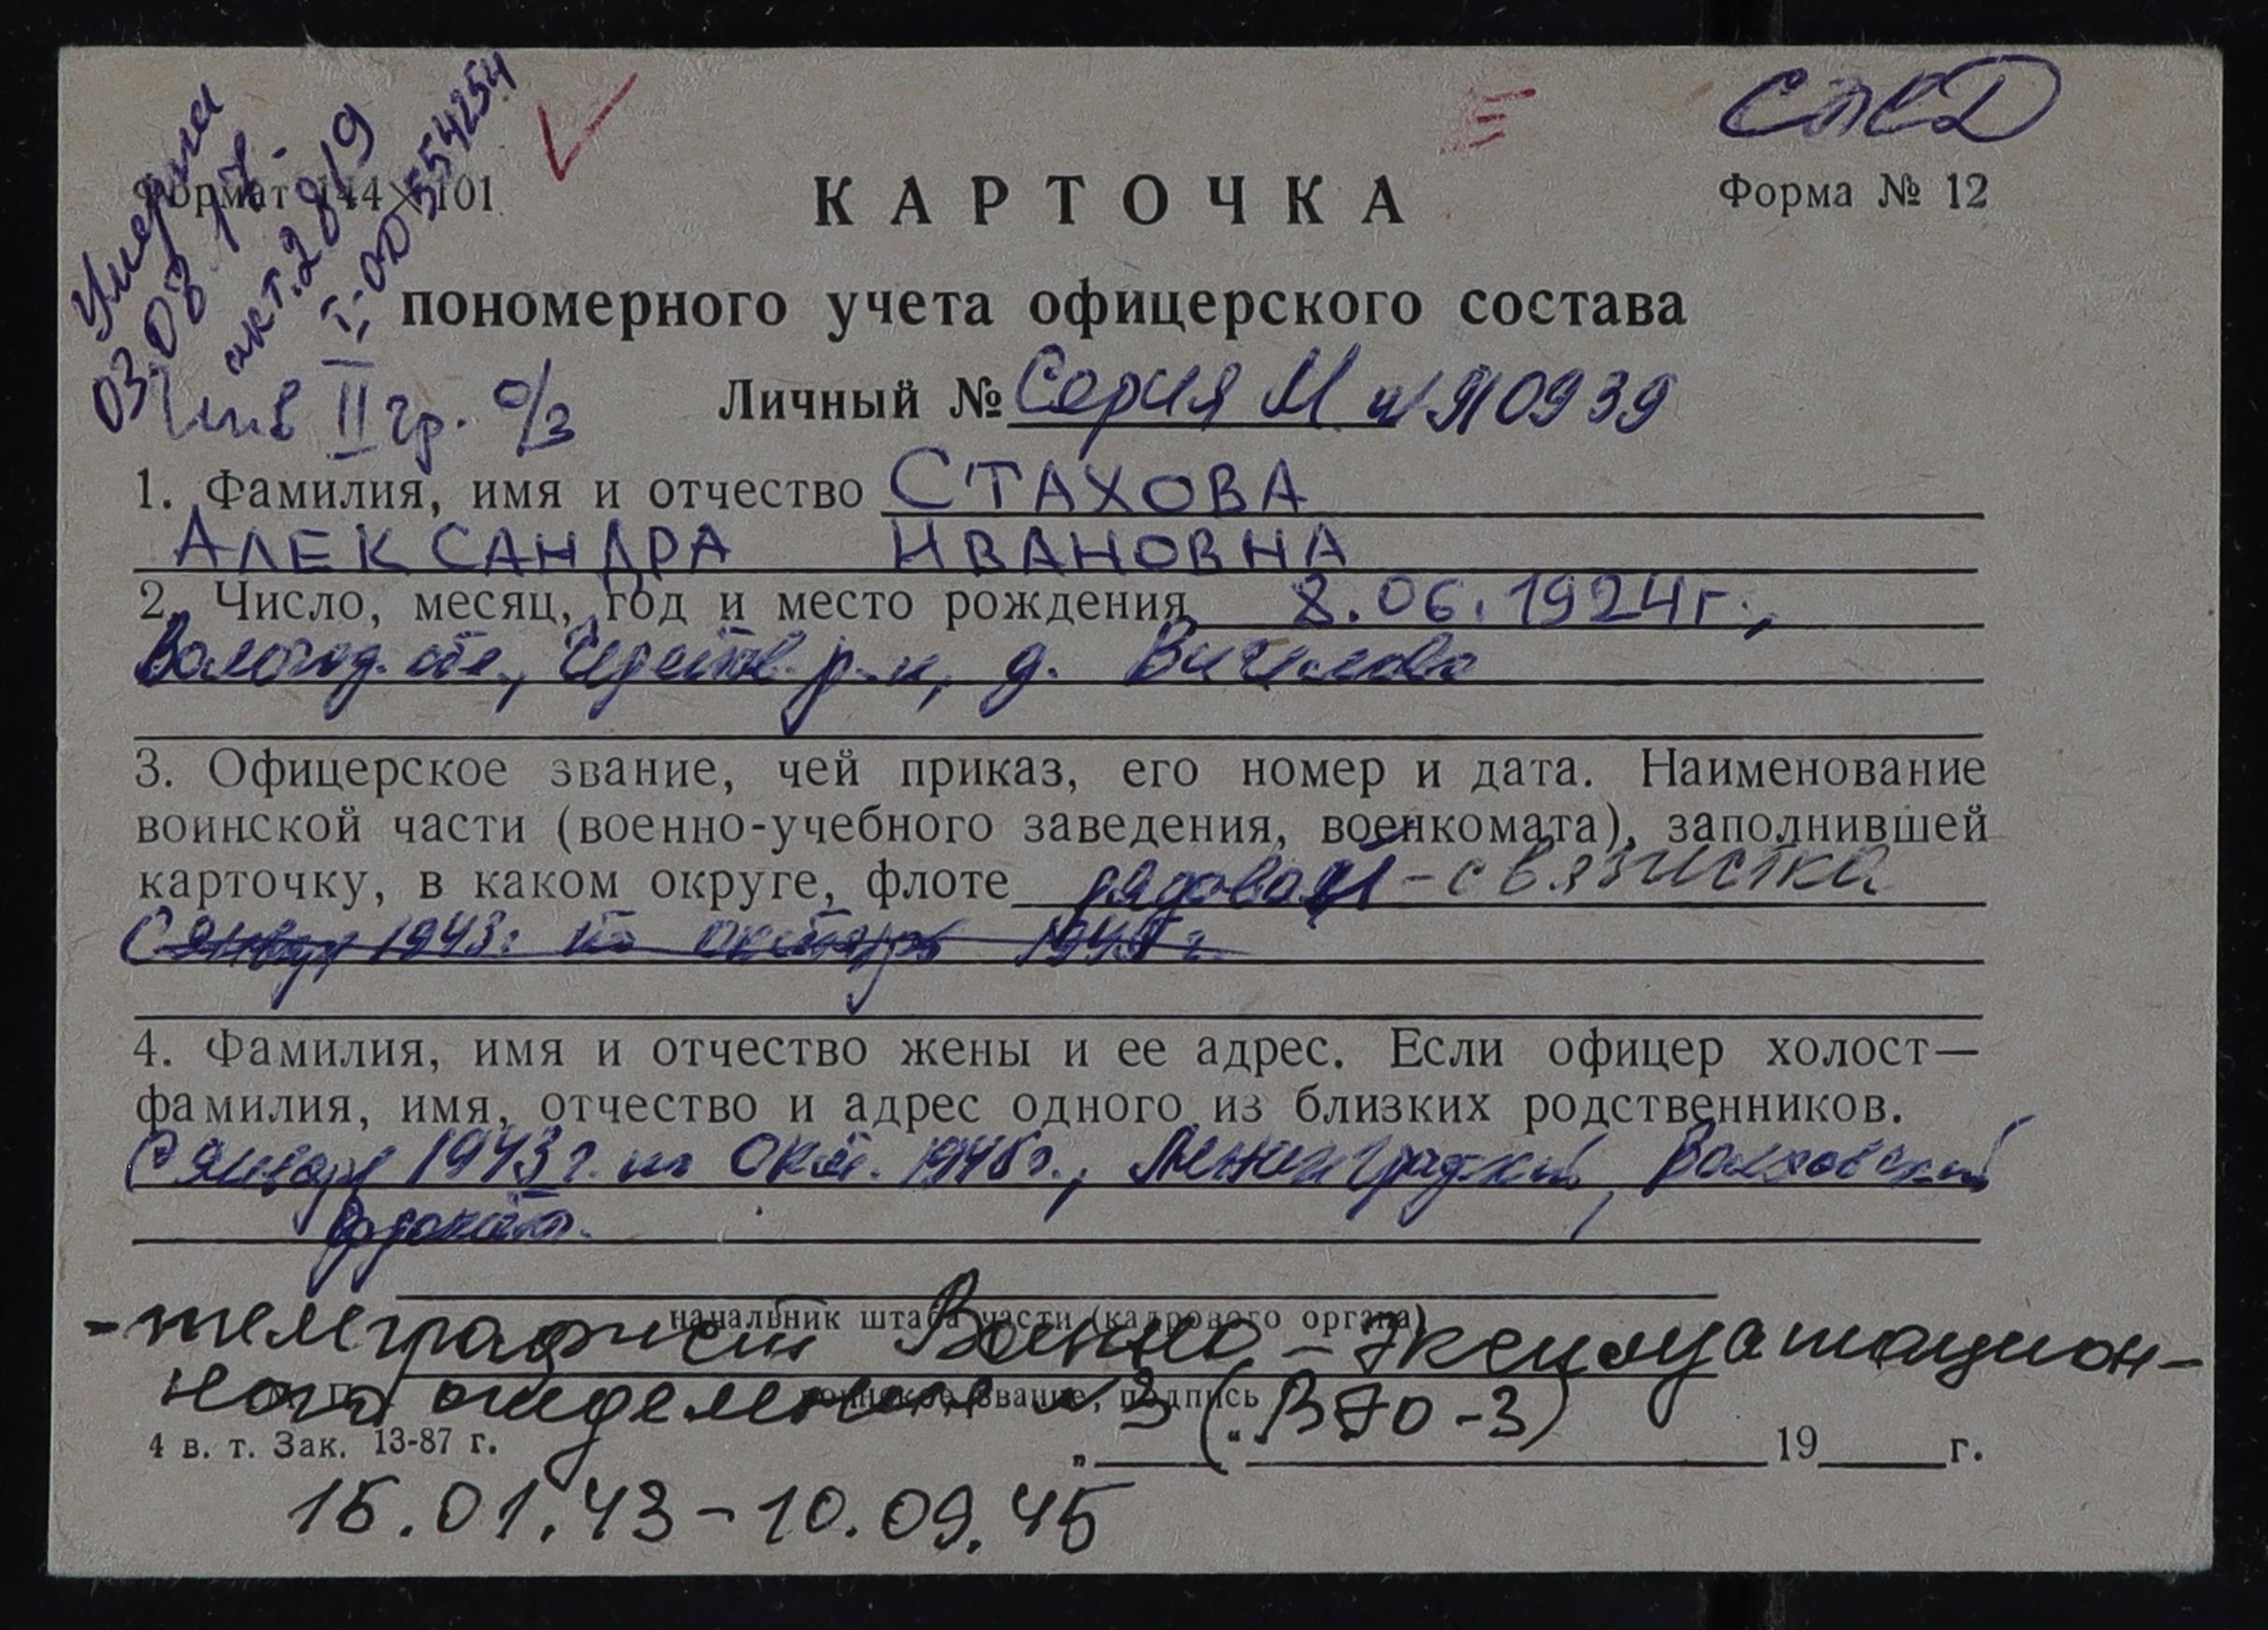 Умерла
03.08.17.
акт.2819
I-ОД 554254
СПЕД
Формат 144×101
Форма № 12
КАРТОЧКА
пономерного учета офицерского состава
Инв II гр. о/з
Личный № Серия М №910939
1. Фамилия, имя и отчество СТАХОВА
АЛЕКСАНДРА ИВАНОВНА
2. Число, месяц, год и место рождения 8.06.1924г.,
Вологод. обл., р-н, д.
3. Офицерское звание, чей приказ, его номер и дата. Наименование
воинской части (военно-учебного заведения, военкомата), заполнившей
карточку, в каком округе, флоте рядовой - связистка
С январ 1943г. по октябрь 1945г.
4. Фамилия, имя и отчество жены и ее адрес. Если офицер холост—
фамилия, имя, отчество и адрес одного из близких родственников.
С января 1943г. по окт. 1945г., Ленинградский, Волховский
фронт.
начальник штаба части (кадрового органа)
- телеграфист Военно-эксплуатацион-
ного отделения №3 (ВЭО-3)
воинское звание, подпись
4 в. т. Зак. 13-87 г.
„ “ 19 г.
15.01.43-10.09.45